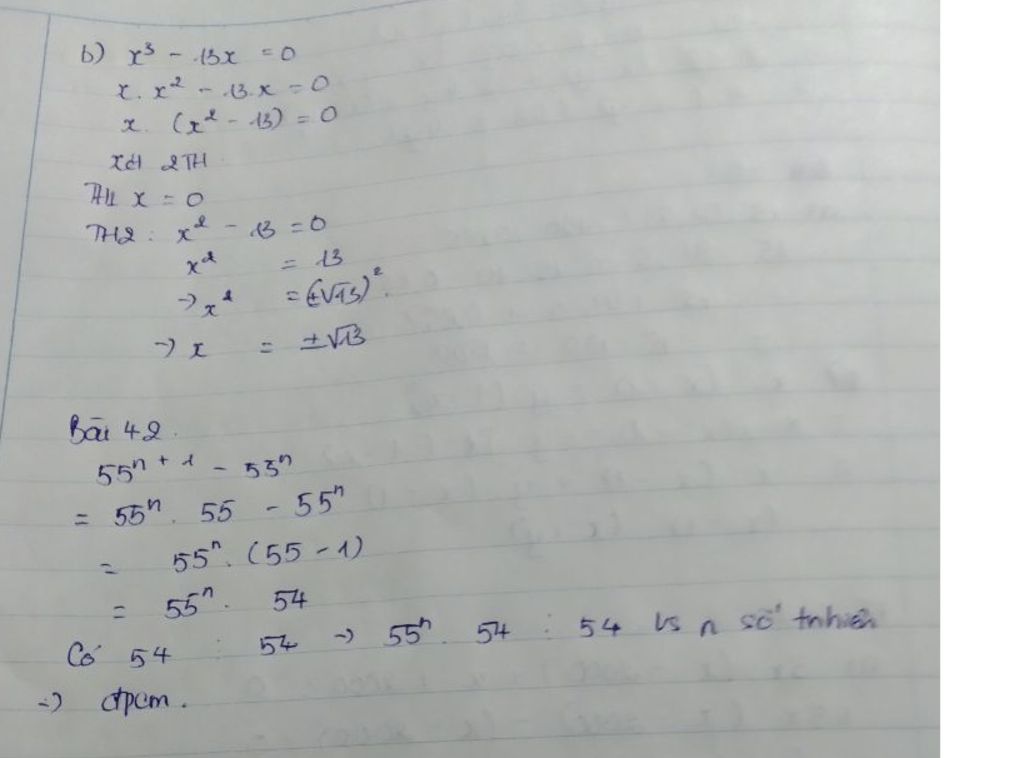 b) x³ - 13x = 0
x. x² - 13.x = 0
x. (x² - 13) = 0
xét 2TH
TH1 x = 0
TH2: x² - 13 = 0
x² = 13
→ x² = (±√13)².
→ x = ±√13
Bài 42.
55ⁿ⁺¹ - 55ⁿ
= 55ⁿ. 55 - 55ⁿ
= 55ⁿ. (55 - 1)
= 55ⁿ. 54
Có 54 ⋮ 54 → 55ⁿ. 54 ⋮ 54 vs n số tnhiên
→ đpcm.